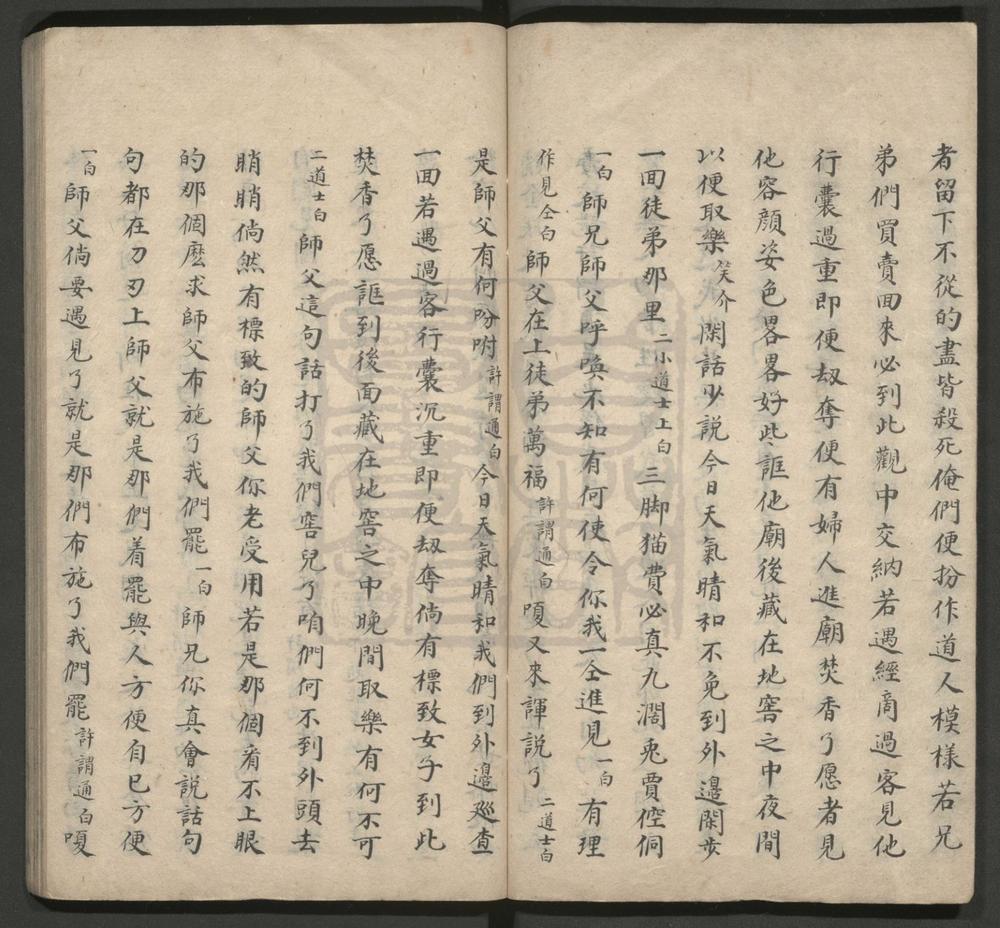 者留下不從的盡皆殺死俺們便扮作道人模樣若兄
弟們買賣回來必到此觀中交納若遇經商過客見他
行囊過重即便刼奪便有婦人進廟焚香了愿者見
他容顏姿色畧畧好些誆他廟後藏在地窖之中夜間
以便取樂笑介閑話少説今日天氣晴和不免到外邊閑步
一面徒弟那里二小道士上白三脚猫費必真九濶兎賈倥侗
一白師兄師父呼喚不知有何使令你我一仝進見一白有理
作見仝白師父在上徒弟萬福許謂通白嗄又來諢説了二道士白
是師父有何吩咐許謂通白今日天氣晴和我們到外邊廵查
一面若遇過客行囊沉重即便刼奪倘有標致女子到此
焚香了愿誆到後面藏在地窖之中晚間取樂有何不可
二道士白師父這句話打了我們窖兒了咱們何不到外頭去
睄睄倘然有標致的師父你老受用若是那個看不上眼
的那個麽求師父布施了我們罷一白師兄你真會説話句
句都在刀刃上師父就是那們着罷與人方便自已方便
一白師父倘要遇見了就是那們布施了我們罷許謂通白嗄